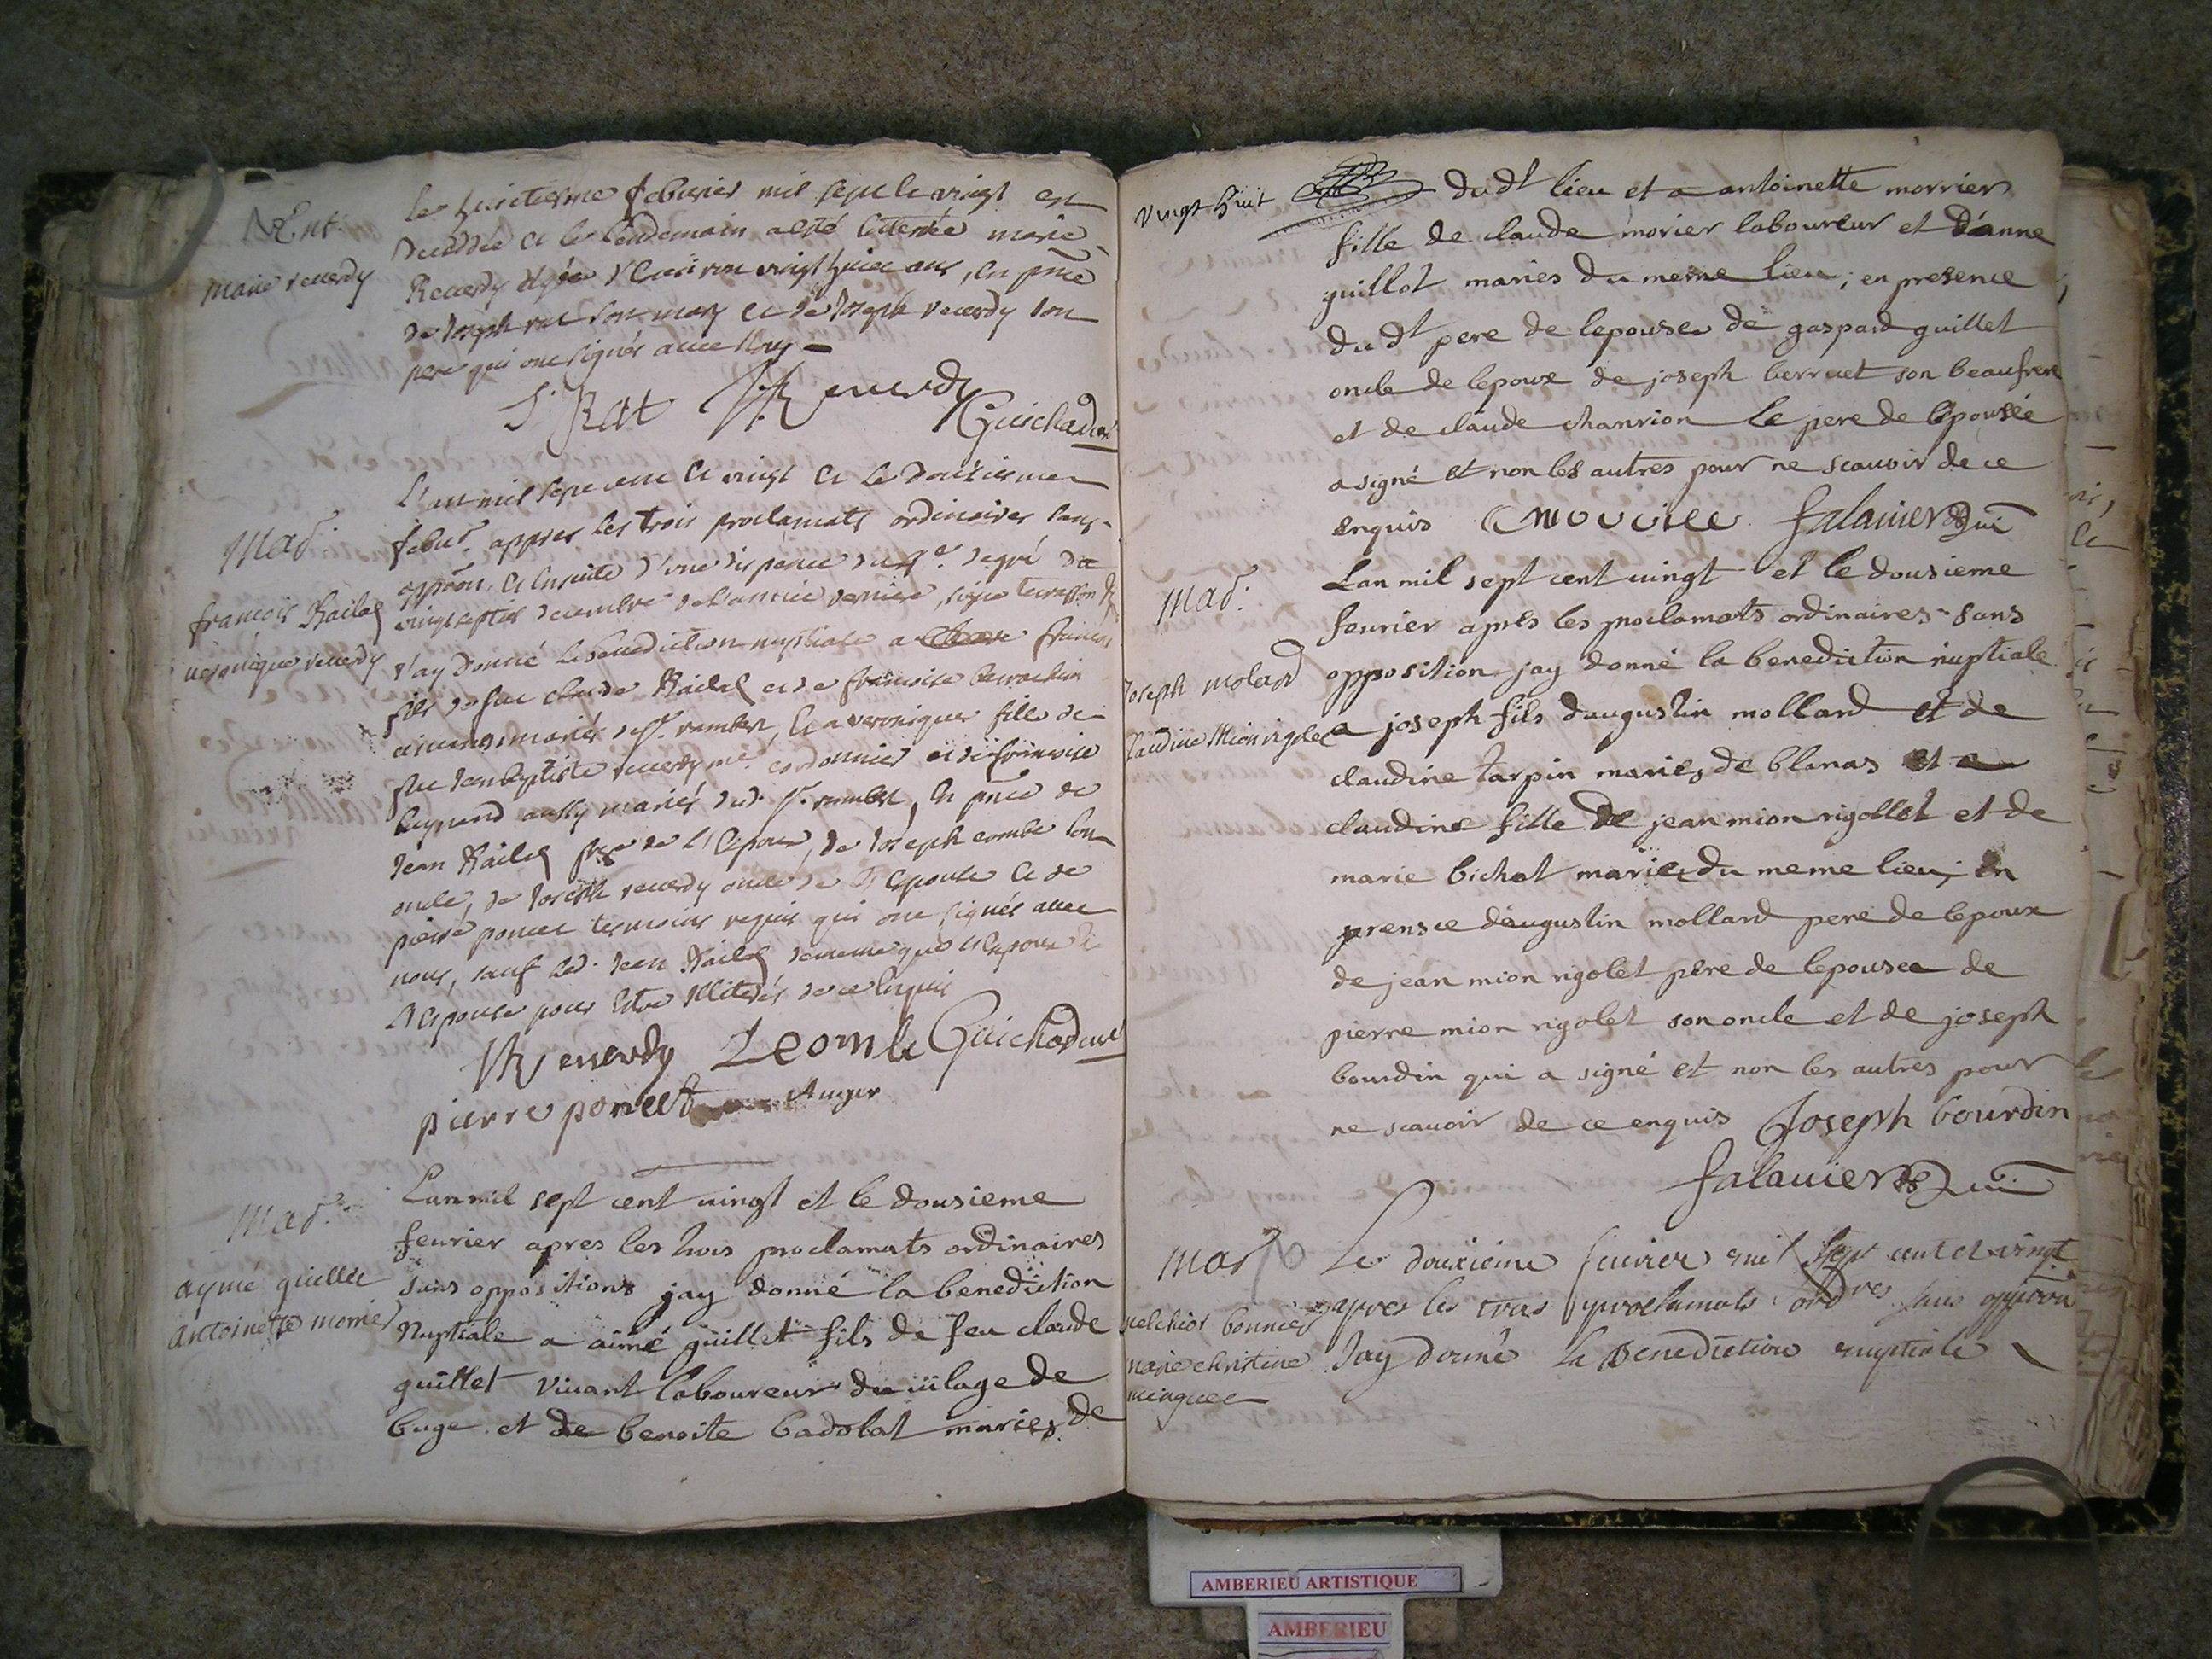 Ent.
Marie reverdy
le huictiesme febvrier mil sept cc vingt est
decedée et le lendemain a esté enterrée marie
Reverdy agée d'environ vingt huict ans, en pnce
de Joseph rat son mary et de Joseph reverdy son
pere qui ont signés avec Moy
J. Rat J Reverdy
Guichad curé
Mad.
francois Railaz
veronique reverdy
L'an mil sept cent et vingt et le douziesme
febvr. appres les trois proclamats ordinaires sans
opp̃on, et ensuite d'une dispence du 4e. degré du
vingt septies decembre de l'année derniere, signé
J'ay donné la benediction nuptiale a francois
fils de feu claude Railaz et de francoise
mariés de St. rambert, et a veronique fille de
feu Jean baptiste reverdy me. cordonnier et de francoise
aussy mariés dud. St. rambert, en pnce de
Jean Railaz frere de l'Epoux, de Joseph combe son
oncle, de Joseph reverdy oncle de l'Epouse et de
pierre poncet tesmoins requis qui ont signés avec
nous, sauf led. Jean Railaz de meme que l'Epoux et
l'Espouse pour estre illiterés de ce Enquis
J Reverdy J Comb Guichad curé
pierre poncet Auger
Mad.
aymé guillet
antoinette morier
Lan mil sept cent vingt et le dousieme
fevrier apres les trois proclamats ordinaires
sans oppositions jay donné la benediction
Nuptiale a aimé guillet fils de feu claude
guillet vivant laboureur du vilage de
buge et de benoite badolat maries de
vingt huit
dudt lieu et a antoinette morrier
fille de claude morier laboureur et d'anne
guillot maries du meme lieu; en presence
du dt pere de lepouse de gaspard guillet
oncle de lepoux de joseph berruet son beaufrere
et de claude chanrion le pere de lépousée
a signé et non les autres pour ne scavoir de ce
enquis C mouriee falavier
Mad.
Joseph molard
Claudine Mion rigolet
Lan mil sept cent vingt et le dousieme
fevrier aprés les proclamats ordinaires sans
opposition jay donné la benediction nuptiale
a joseph fils daugustin mollard et de
claudine tarpin maries de blanas et a
claudine fille de jean mion rigollet et de
marie bichat maries du meme lieu; en
prensce daugustin mollard pere de lepoux
de jean mion rigolet pere de lepousee de
pierre mion rigolet son oncle et de joseph
bourdin qui a signé et non les autres pour
ne scavoir de ce enquis Joseph bourdin
falavier
Mar
melchior bonnier
marie christine
Le douzieme fevrier mil sept cent et vingt
apres les trois proclamats ordres sans opp̃on
Jay donné La Benediction nuptiale
AMBERIEU ARTISTIQUE
AMBERIEU